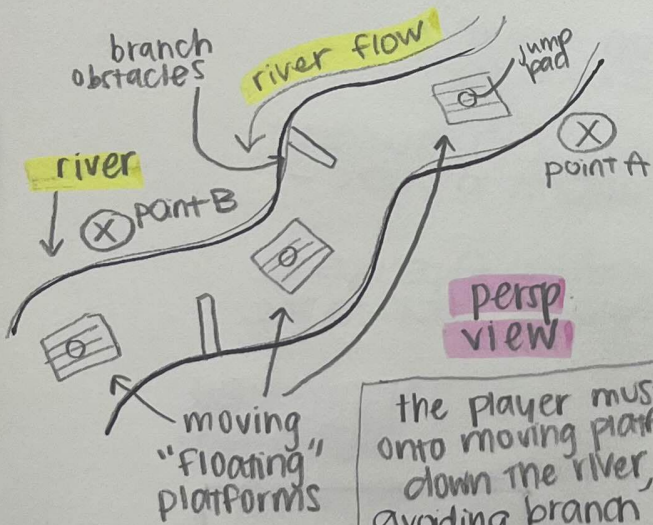 branch
obstacles
river flow
jump
pad
river
point B
point A
persp
view
moving
"floating"
platforms
the player
onto moving
down the river,
avoiding branch